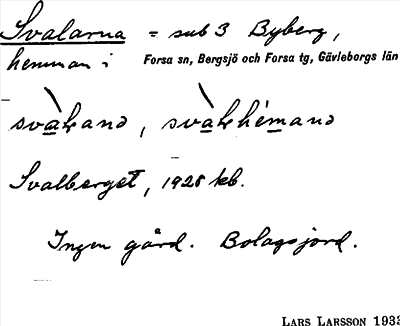 Svalarna = sub 3 Byberg,
hemman i Forsa sn, Bergsjö och Forsa tg, Gävleborgs län
Svalberget, 1928 kb.
Ingen gård. Bolagsjord.
LARS LARSSON 1933